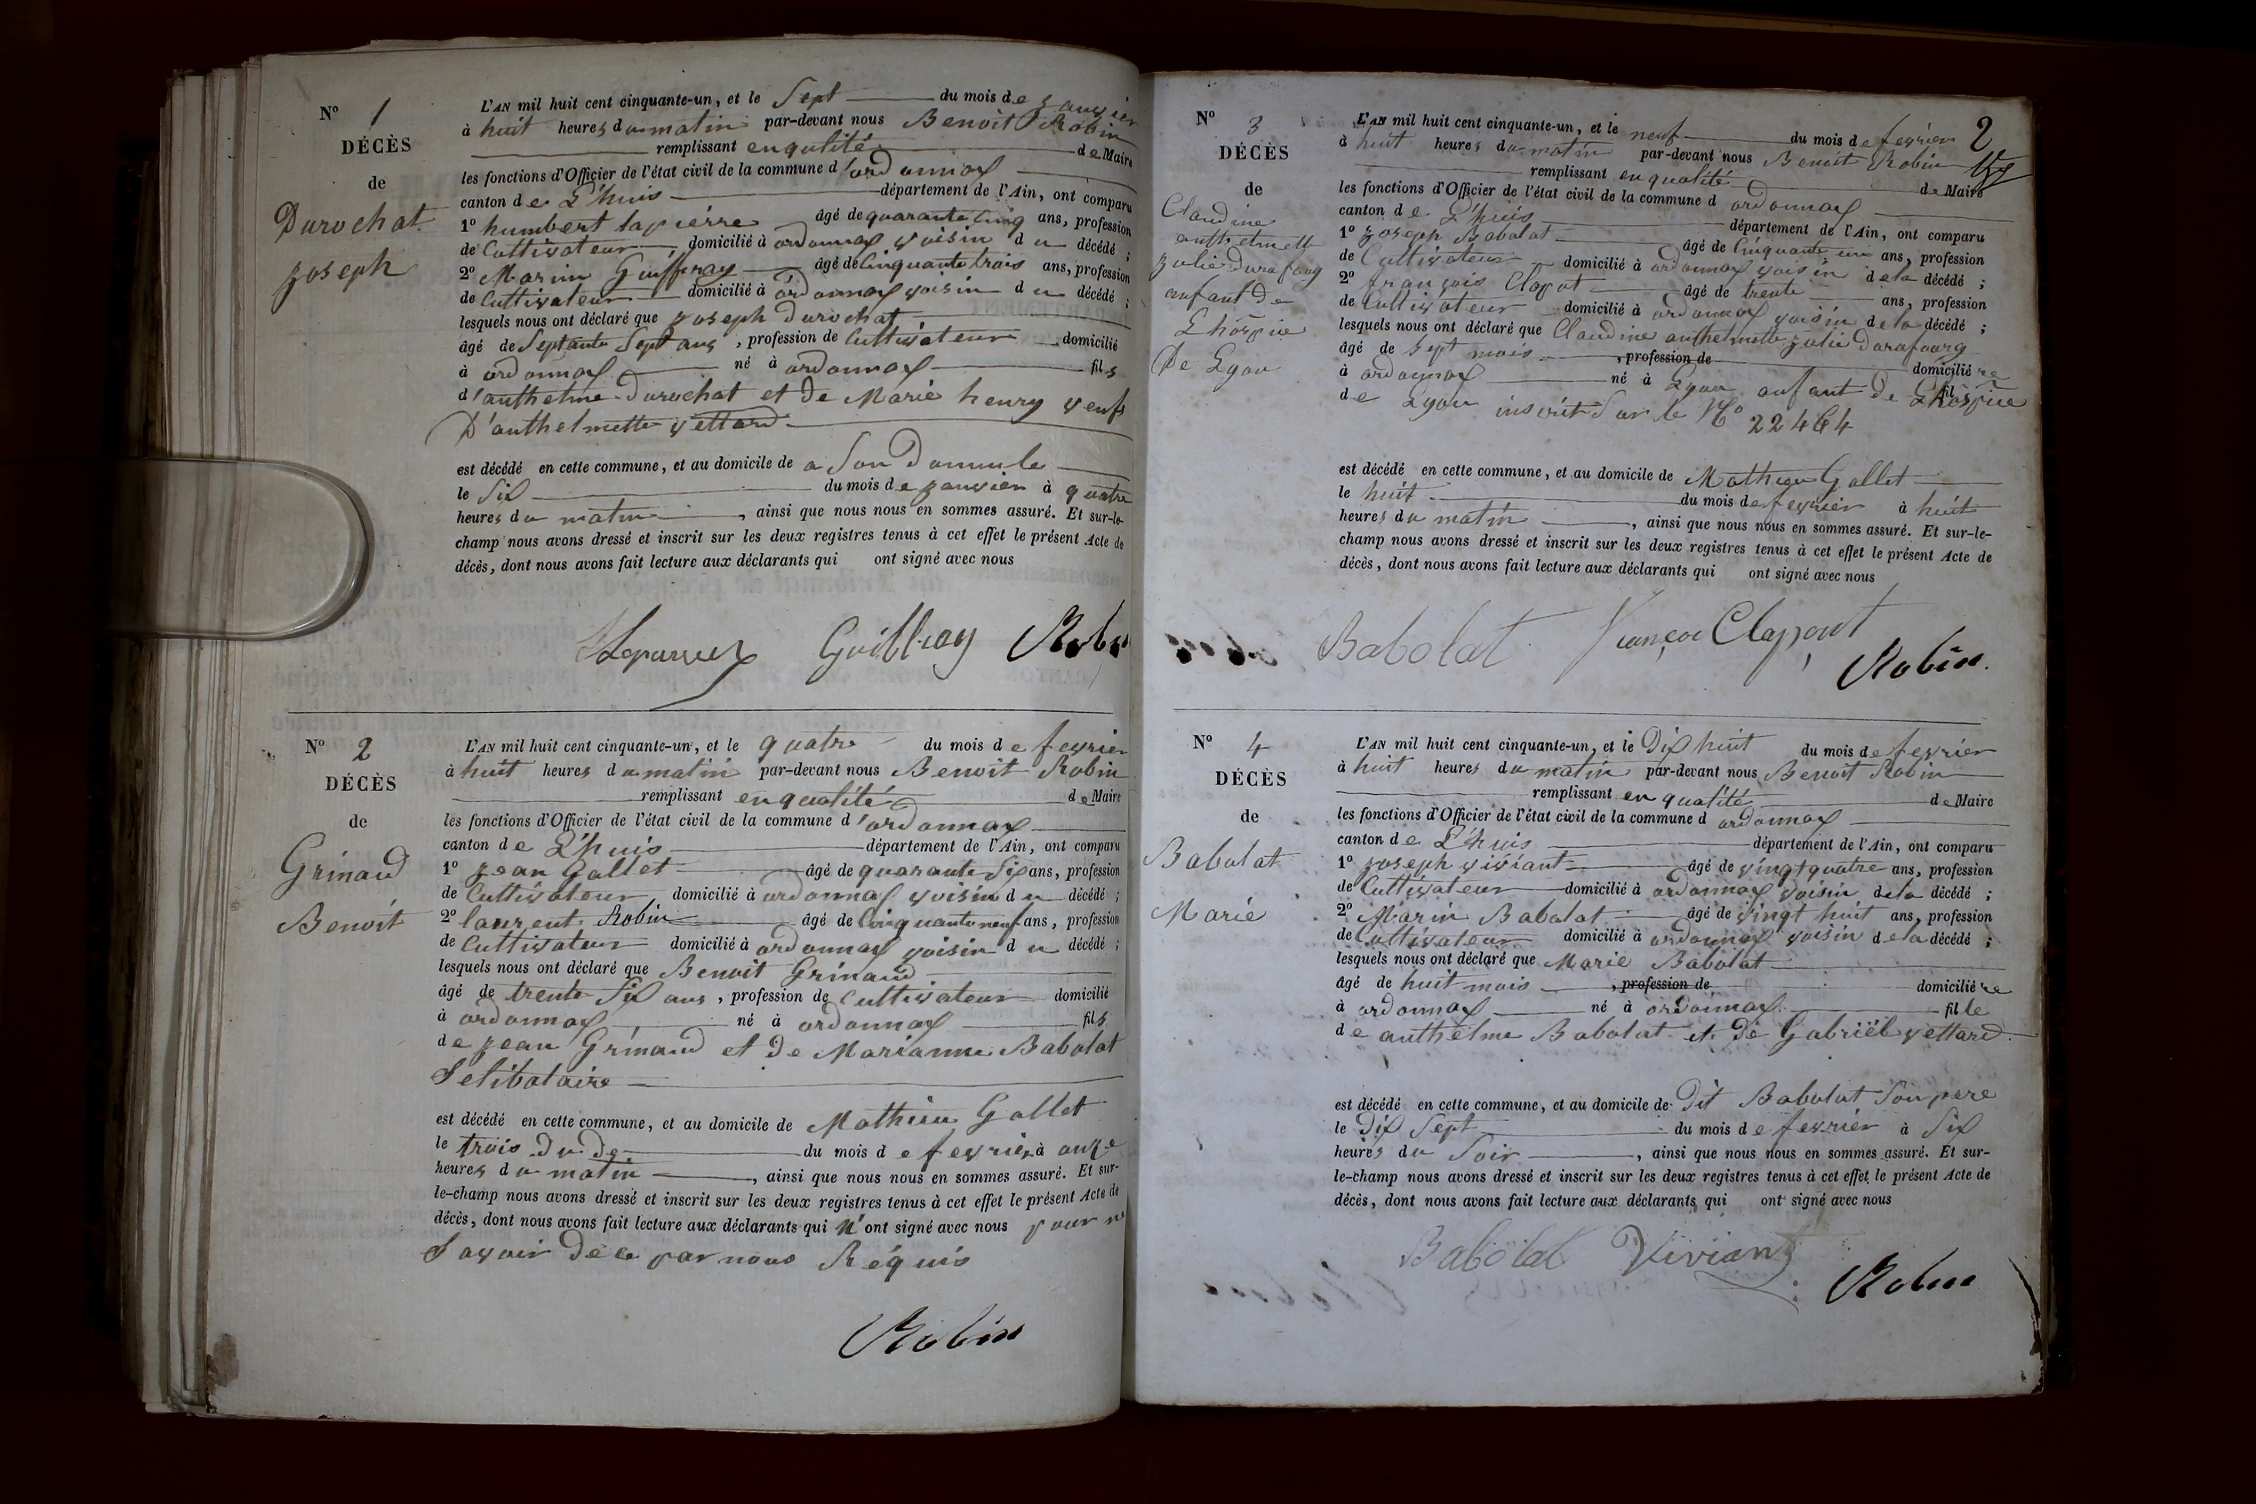 Nº 1
DÉCÈS
de
Durochat
Joseph
L'AN mil huit cent cinquante-un, et le Sept du mois de janvier
à huit heures du matin par-devant nous Benoit Robin
remplissant en qualité de Maire
les fonctions d'Officier de l'état civil de la commune d'ordonnax
canton de L'huis département de l'Ain, ont comparu
1º humbert lapierre âgé de quarante cinq ans, profession
de Cultivateur domicilié à ordonnax voisin du décédé ;
2º Marin Guiffray âgé de Cinquante trois ans, profession
de Cultivateur domicilié à ordonnax voisin du décédé ;
lesquels nous ont déclaré que Joseph Durochat
âgé de Septante Sept ans, profession de Cultivateur domicilié
à ordonnax né à ordonnax fils
d'anthelme Durochat et de Marie henry veuf
D'anthelmette vettard
est décédé en cette commune, et au domicile de a Son Domicile
le Six du mois de janvier à quatre
heures du matin, ainsi que nous nous en sommes assuré. Et sur-le-
champ nous avons dressé et inscrit sur les deux registres tenus à cet effet le présent Acte de
décès, dont nous avons fait lecture aux déclarants qui ont signé avec nous
Guiffray Robin
Nº 2
DÉCÈS
de
Grinand
Benoit
L'AN mil huit cent cinquante-un, et le quatre du mois de fevrier
à huit heures du matin par-devant nous Benoit Robin
remplissant en qualité de Maire
les fonctions d'Officier de l'état civil de la commune d'ordonnax
canton de L'huis département de l'Ain, ont comparu
1º jean Gallet âgé de quarante Six ans, profession
de Cultivateur domicilié à ordonnax voisin du décédé ;
2º laurent Robin âgé de Cinquante neuf ans, profession
de Cultivateur domicilié à ordonnax voisin du décédé ;
lesquels nous ont déclaré que Benoit Grinand
âgé de trente Six ans, profession de Cultivateur domicilié
à ordonnax né à ordonnax fils
de jean Grinand et de Marianne Babolat
Selibataire
est décédé en cette commune, et au domicile de Mathieu Gallet
le trois du de du mois de fevrier à onze
heures du matin, ainsi que nous nous en sommes assuré. Et sur-
le-champ nous avons dressé et inscrit sur les deux registres tenus à cet effet le présent Acte de
décès, dont nous avons fait lecture aux déclarants qui n'ont signé avec nous pour ne
Savoir de ce par nous Réquis
Robin
2
Nº 3
DÉCÈS
de
Claudine
anthelmette
julie Durafourg
anfant de
Lhospice
De Lyon
L'AN mil huit cent cinquante-un, et le neuf du mois de fevrier
à huit heures du matin par-devant nous Benoit Robin
remplissant en qualité de Maire
les fonctions d'Officier de l'état civil de la commune d ordonnax
canton de L'huis département de l'Ain, ont comparu
1º Joseph Babolat âgé de Cinquante un ans, profession
de Cultivateur domicilié à ordonnax voisin de la décédé ;
2º françois Clapot âgé de trente ans, profession
de Cultivateur domicilié à ordonnax voisin de la décédé ;
lesquels nous ont déclaré que Claudine anthelmette julie Durafourg
âgé de Sept mois, profession de domicilié re
à ordonnax né à Lyon anfant de Lhospice fil
de Lyon inscrit Sur le Nº 22464
est décédé en cette commune, et au domicile de Mathieu Gallet
le huit du mois de fevrier à huit
heures du matin, ainsi que nous nous en sommes assuré. Et sur-le-
champ nous avons dressé et inscrit sur les deux registres tenus à cet effet le présent Acte de
décès, dont nous avons fait lecture aux déclarants qui ont signé avec nous
Babolat françois Clappout Robin
Nº 4
DÉCÈS
de
Babolat
Marie
L'AN mil huit cent cinquante-un, et le Dix huit du mois de fevrier
à huit heures du matin par-devant nous Benoit Robin
remplissant en qualité de Maire
les fonctions d'Officier de l'état civil de la commune d ordonnax
canton de L'huis département de l'Ain, ont comparu
1º joseph viviant âgé de vingt quatre ans, profession
de Cultivateur domicilié à ordonnax voisin de la décédé ;
2º Marin Babolat âgé de vingt huit ans, profession
de Cultivateur domicilié à ordonnax voisin de la décédé ;
lesquels nous ont déclaré que Marie Babolat
âgé de huit mois, profession de domiciliére
à ordonnax né à ordonnax fille
de anthelme Babolat et de Gabriël vettard
est décédé en cette commune, et au domicile de Dit Babolat Son pere
le Dix Sept du mois de fevrier à Six
heures du Soir, ainsi que nous nous en sommes assuré. Et sur-
le-champ nous avons dressé et inscrit sur les deux registres tenus à cet effet le présent Acte de
décès, dont nous avons fait lecture aux déclarants qui ont signé avec nous
Babolat Viviant Robin